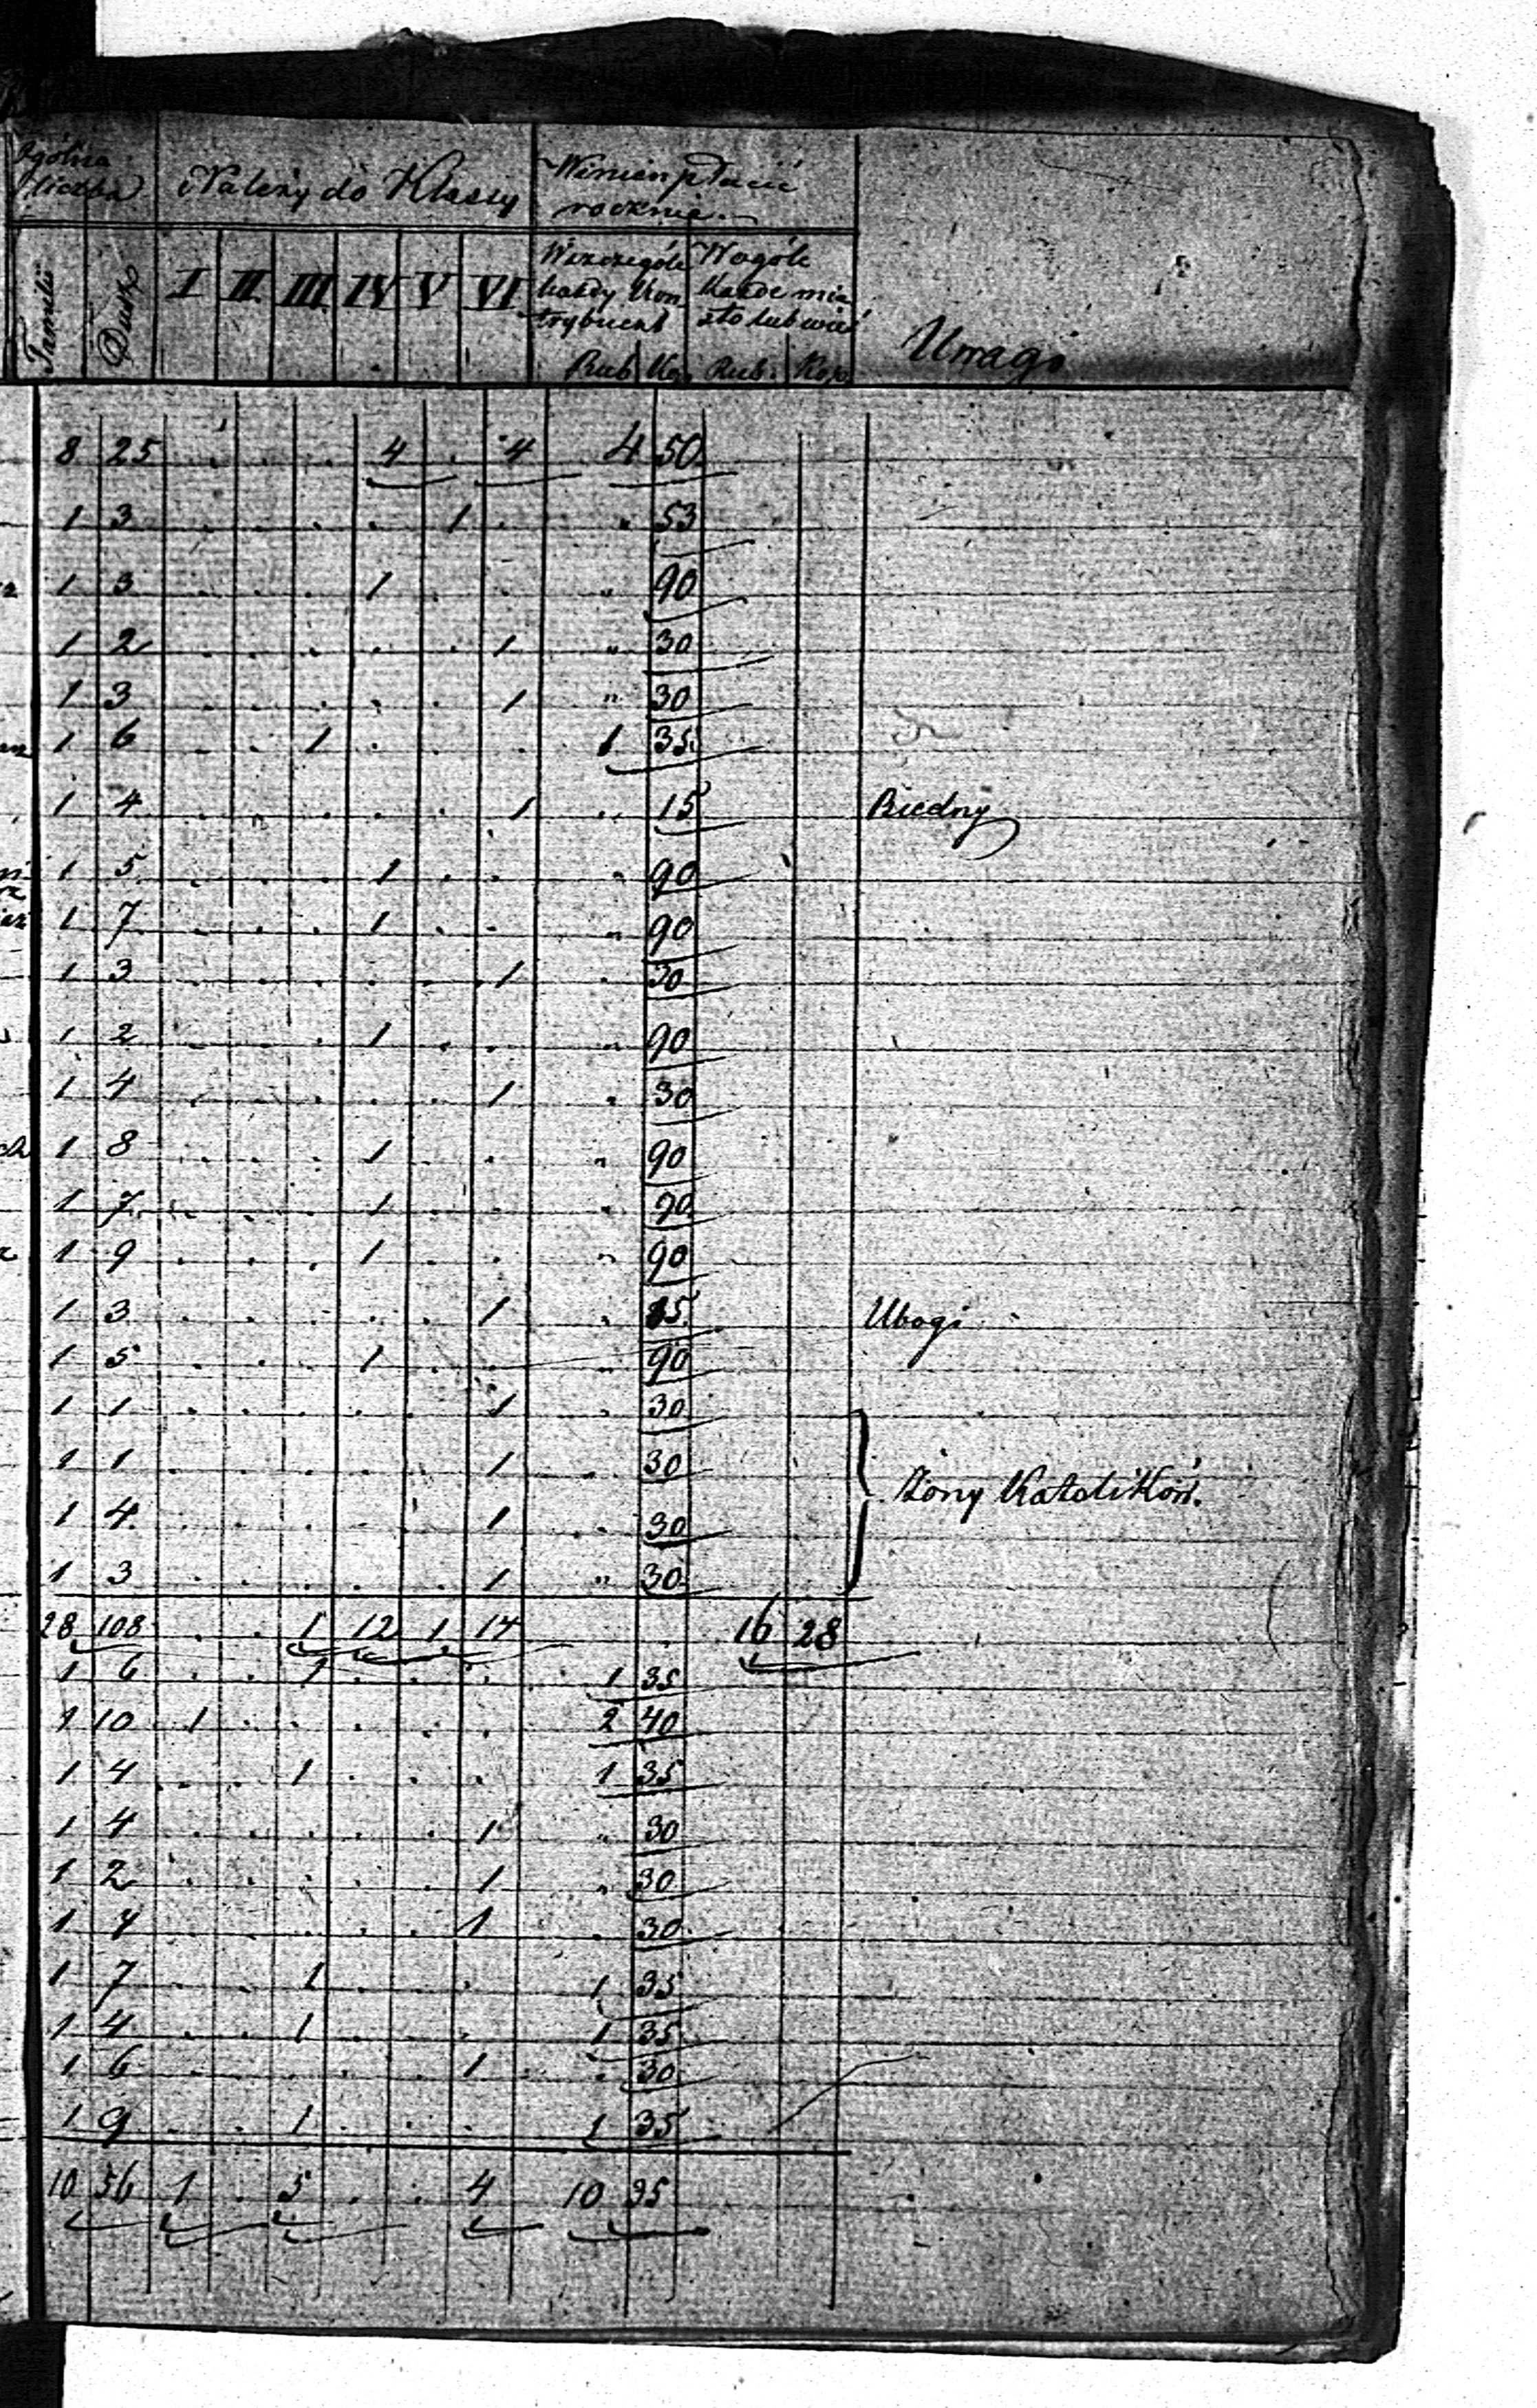 Ogólna liczba | Należy do Klassy | Winien płacić rocznie. | Uwagi
Familii | Dusz | I | II | III | IV | V | VI | W szczególe każdy kontrybuent Rub. Kop. | W ogóle każde miasto lub wieś Rub. Kop.
8 25 . . . 4 . 4 4 50
1 3 . . . . 1 . " 53
1 3 . . . 1 . . " 90
1 2 . . . . . 1 " 30
1 3 . . . . . 1 " 30
1 6 . . 1 . . . 1 35
1 4 . . . . . 1 " 15 Biedny
1 5 . . . 1 . . " 90
1 7 . . . 1 . . " 90
1 3 . . . . . 1 " 30
1 2 . . . 1 . . " 90
1 4 . . . . . 1 " 30
1 8 . . . 1 . . " 90
1 7 . . . 1 . . " 90
1 9 . . . 1 . . " 90
1 3 . . . . . 1 " 15 Ubogi
1 5 . . . 1 . . " 90
1 1 . . . . . 1 " 30
1 1 . . . . . 1 " 30
Żony Katolików.
1 4 . . . . . 1 " 30
1 3 . . . . . 1 " 30
28 108 . . 1 12 1 14 . . 16 28
1 6 . . 1 . . . 1 35
1 10 1 . . . . . 2 40
1 4 . . 1 . . . 1 35
1 4 . . . . . 1 " 30
1 2 . . . . . 1 " 30
1 4 . . . . . 1 " 30
1 7 . . 1 . . . 1 35
1 4 . . 1 . . . 1 35
1 6 . . . . . 1 " 30
1 9 . . 1 . . . 1 35
10 56 1 . 5 . . 4 10 35